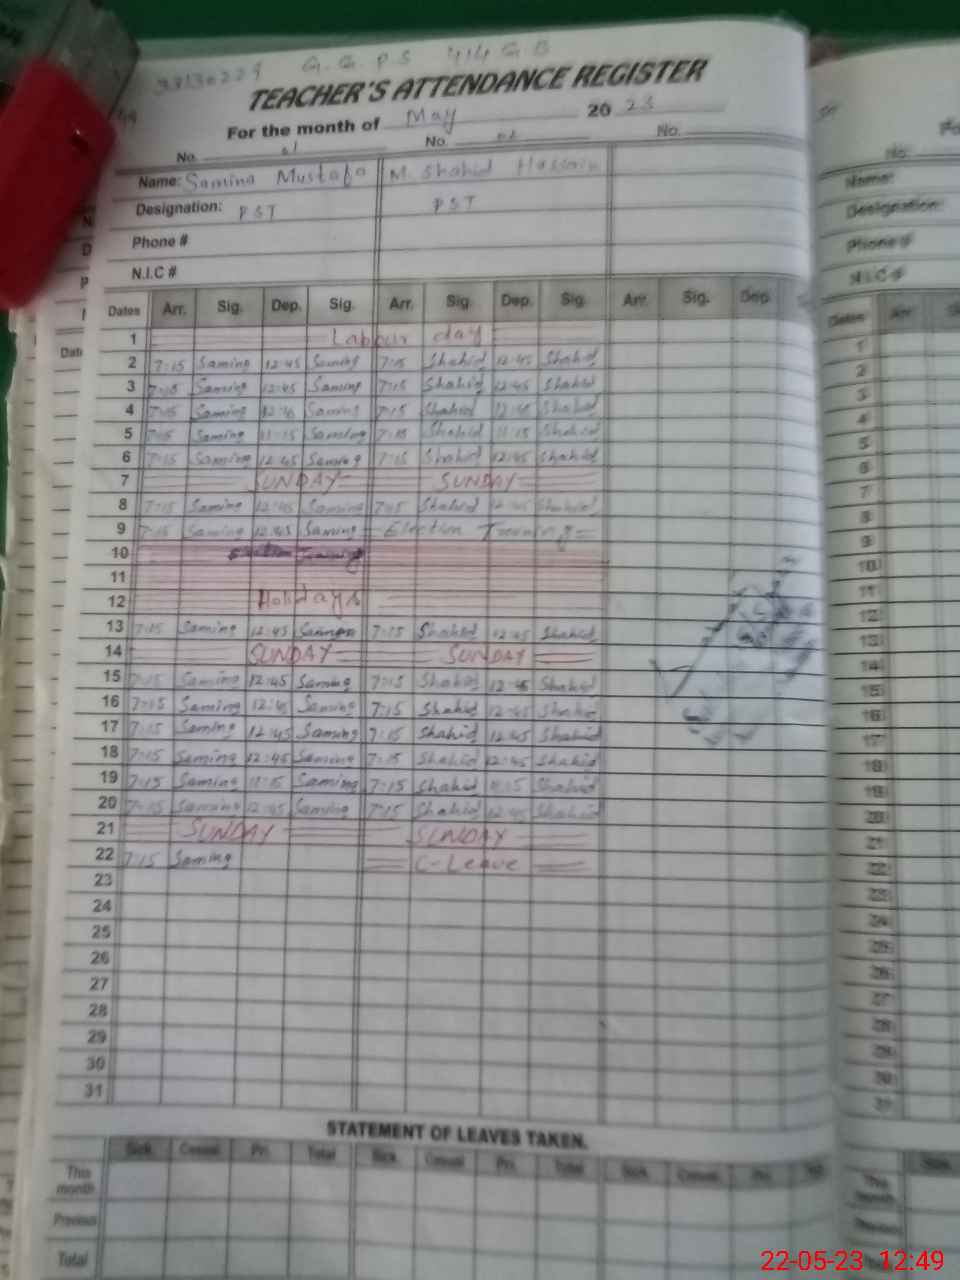 37130229 G.G.P.S 414 G B
TEACHER'S ATTENDANCE REGISTER
For the month of May 20 23
No. 01 No. 02 No.
Name: Samina Mustafa M. Shahid Hussain
Designation: PST PST
Phone #
N.I.C #
Dates Arr. Sig. Dep. Sig. Arr. Sig. Dep. Sig. Arr. Sig. Dep.
1 Labour day
2 7:15 Samina 12:45 Samina 7:15 Shahid 12:45 Shahid
3 7:15 Samina 12:45 Samina 7:15 Shahid 12:45 Shahid
4 7:15 Samina 12:45 Samina 7:15 Shahid 12:45 Shahid
5 7:15 Samina 11:15 Samina 7:15 Shahid 11:15 Shahid
6 7:15 Samina 12:45 Samina 7:15 Shahid 12:45 Shahid
7 SUNDAY SUNDAY
8 7:15 Samina 12:45 Samina 7:15 Shahid 12:45 Shahid
9 7:15 Samina 12:45 Samina Election Training
10 Election Training
11
12 Holidays
13 7:15 Samina 12:45 Samina 7:15 Shahid 12:45 Shahid
14 SUNDAY SUNDAY
15 7:15 Samina 12:45 Samina 7:15 Shahid 12:45 Shahid
16 7:15 Samina 12:45 Samina 7:15 Shahid 12:45 Shahid
17 7:15 Samina 12:45 Samina 7:15 Shahid 12:45 Shahid
18 7:15 Samina 12:45 Samina 7:15 Shahid 12:45 Shahid
19 7:15 Samina 11:15 Samina 7:15 Shahid 11:15 Shahid
20 7:15 Samina 12:45 Samina 7:15 Shahid 12:45 Shahid
21 SUNDAY SUNDAY
22 7:15 Samina C-Leave
23
24
25
26
27
28
29
30
31
STATEMENT OF LEAVES TAKEN.
Sick. Casual. Pri. Total Sick. Casual. Pri. Total Sick. Casual. Pri.
This month
Previous
Total
22-05-23 12:49